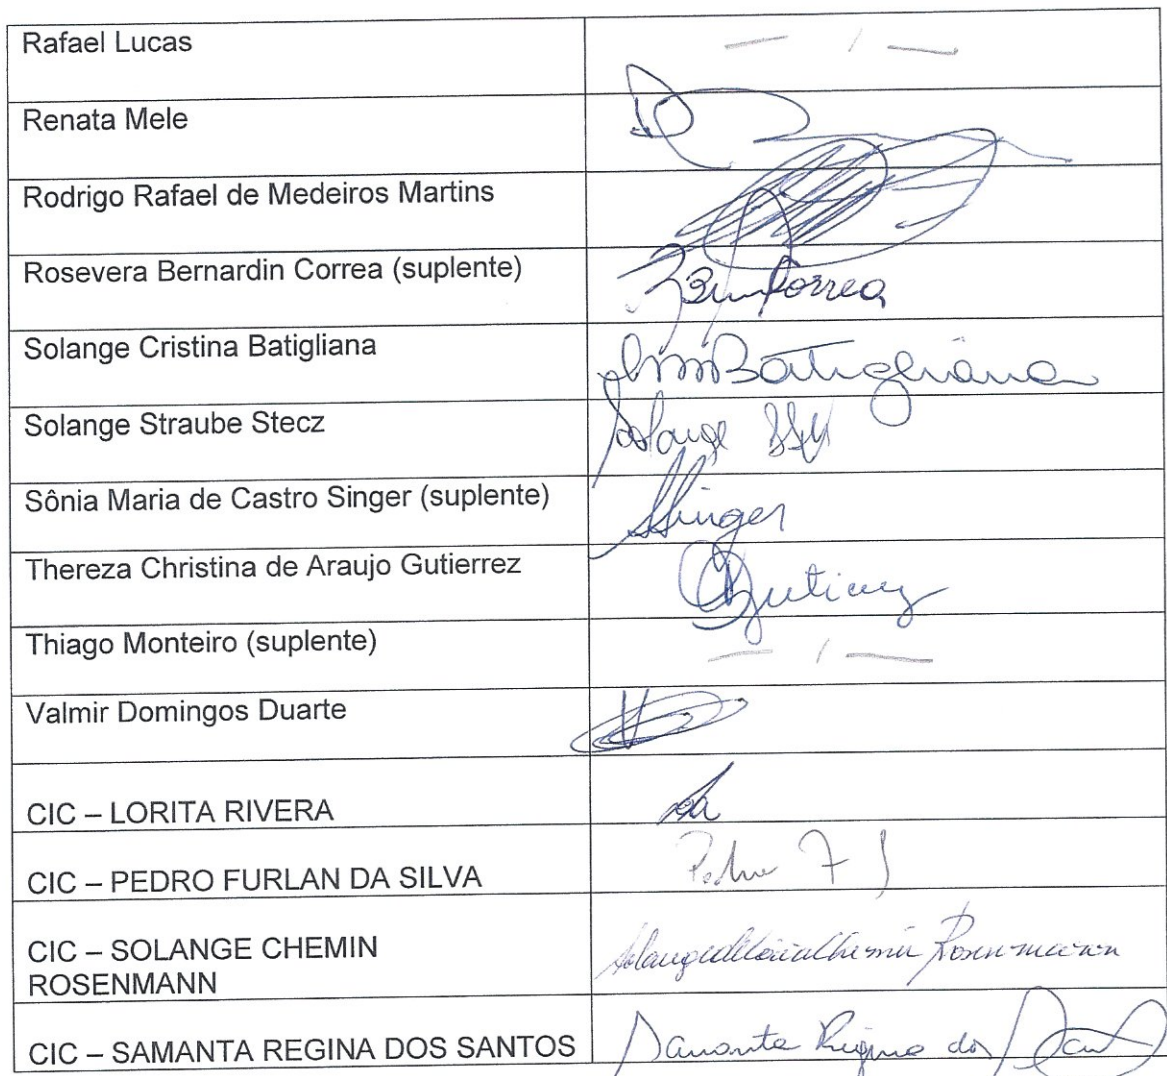 Rafael Lucas — / —
Renata Mele
Rodrigo Rafael de Medeiros Martins
Rosevera Bernardin Correa (suplente) Correa
Solange Cristina Batigliana Batigliana
Solange Straube Stecz Solange
Sônia Maria de Castro Singer (suplente) Singer
Thereza Christina de Araujo Gutierrez
Thiago Monteiro (suplente) — / —
Valmir Domingos Duarte
CIC – LORITA RIVERA
CIC – PEDRO FURLAN DA SILVA Pedro F S
CIC – SOLANGE CHEMIN Rosenmann
ROSENMANN
CIC – SAMANTA REGINA DOS SANTOS Samanta Regina dos Santos